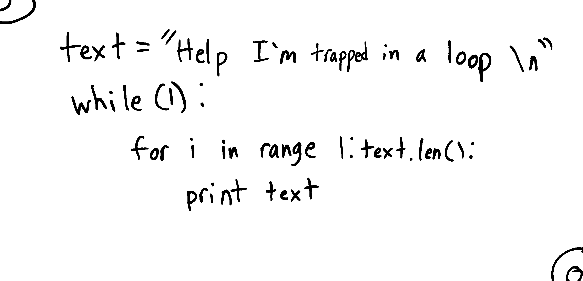 text = "Help I'm trapped in a loop \n"
while (1):
for i in range 1:text.len():
print text